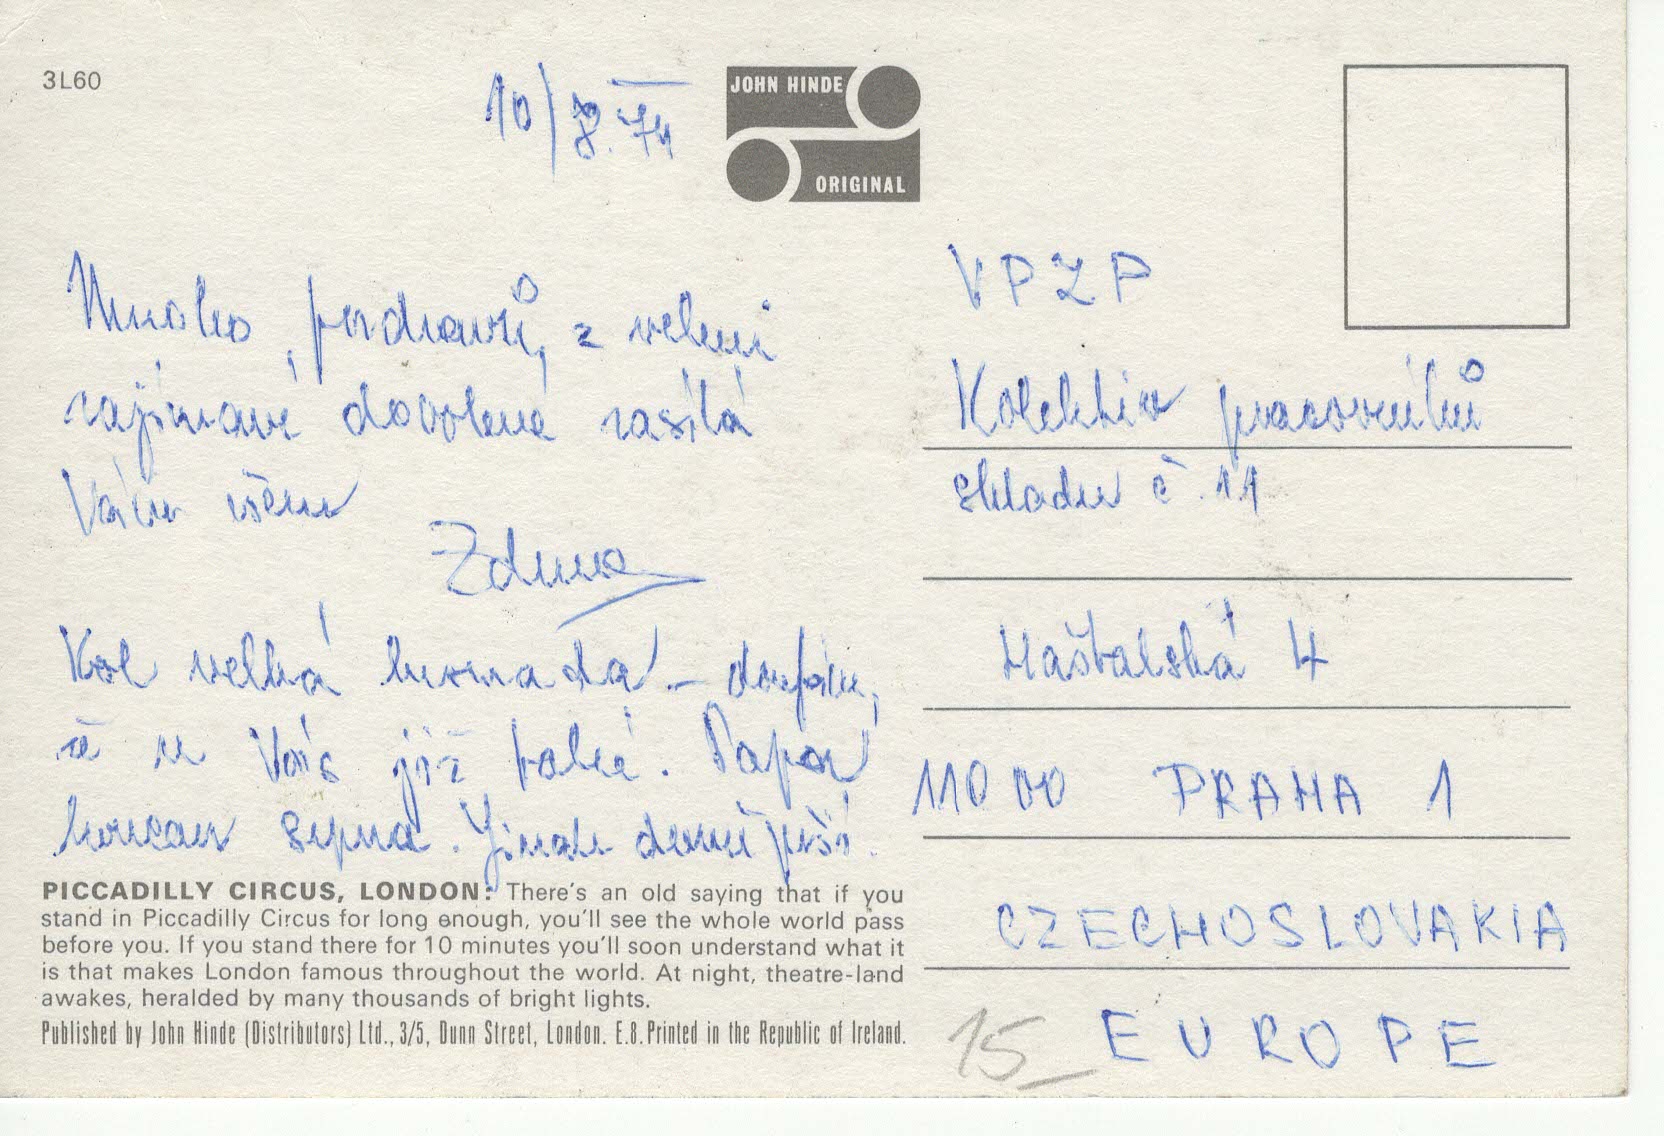 3L60
10/8.74
JOHN HINDE
ORIGINAL
Mnoho pozdravů z velmi
zajímavé dovolené zasílá
Vám všem
Zdena
Kol velká hromada – doufám,
že u Vás již také. Papa
koncem srpna. Jinak domů píši.
VPZP
Kolektiv pracovníků
skladu č. 11
Haštalská 4
110 00 PRAHA 1
CZECHOSLOVAKIA
EUROPE
15
PICCADILLY CIRCUS, LONDON: There's an old saying that if you
stand in Piccadilly Circus for long enough, you'll see the whole world pass
before you. If you stand there for 10 minutes you'll soon understand what it
is that makes London famous throughout the world. At night, theatre-land
awakes, heralded by many thousands of bright lights.
Published by John Hinde (Distributors) Ltd., 3/5, Dunn Street, London. E.8. Printed in the Republic of Ireland.